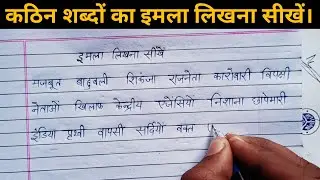 कठिन शब्दों का इमला लिखना सीखें।
इमला लिखना सीखें
मजबूत बाहुबली शिकंजा राजनेता कारोबारी विपक्षी
नेताओं खिलाफ केन्द्रीय एजेंसियों निशाना छापेमारी
इंडिया पृथ्वी वापसी सर्दियों वक्त